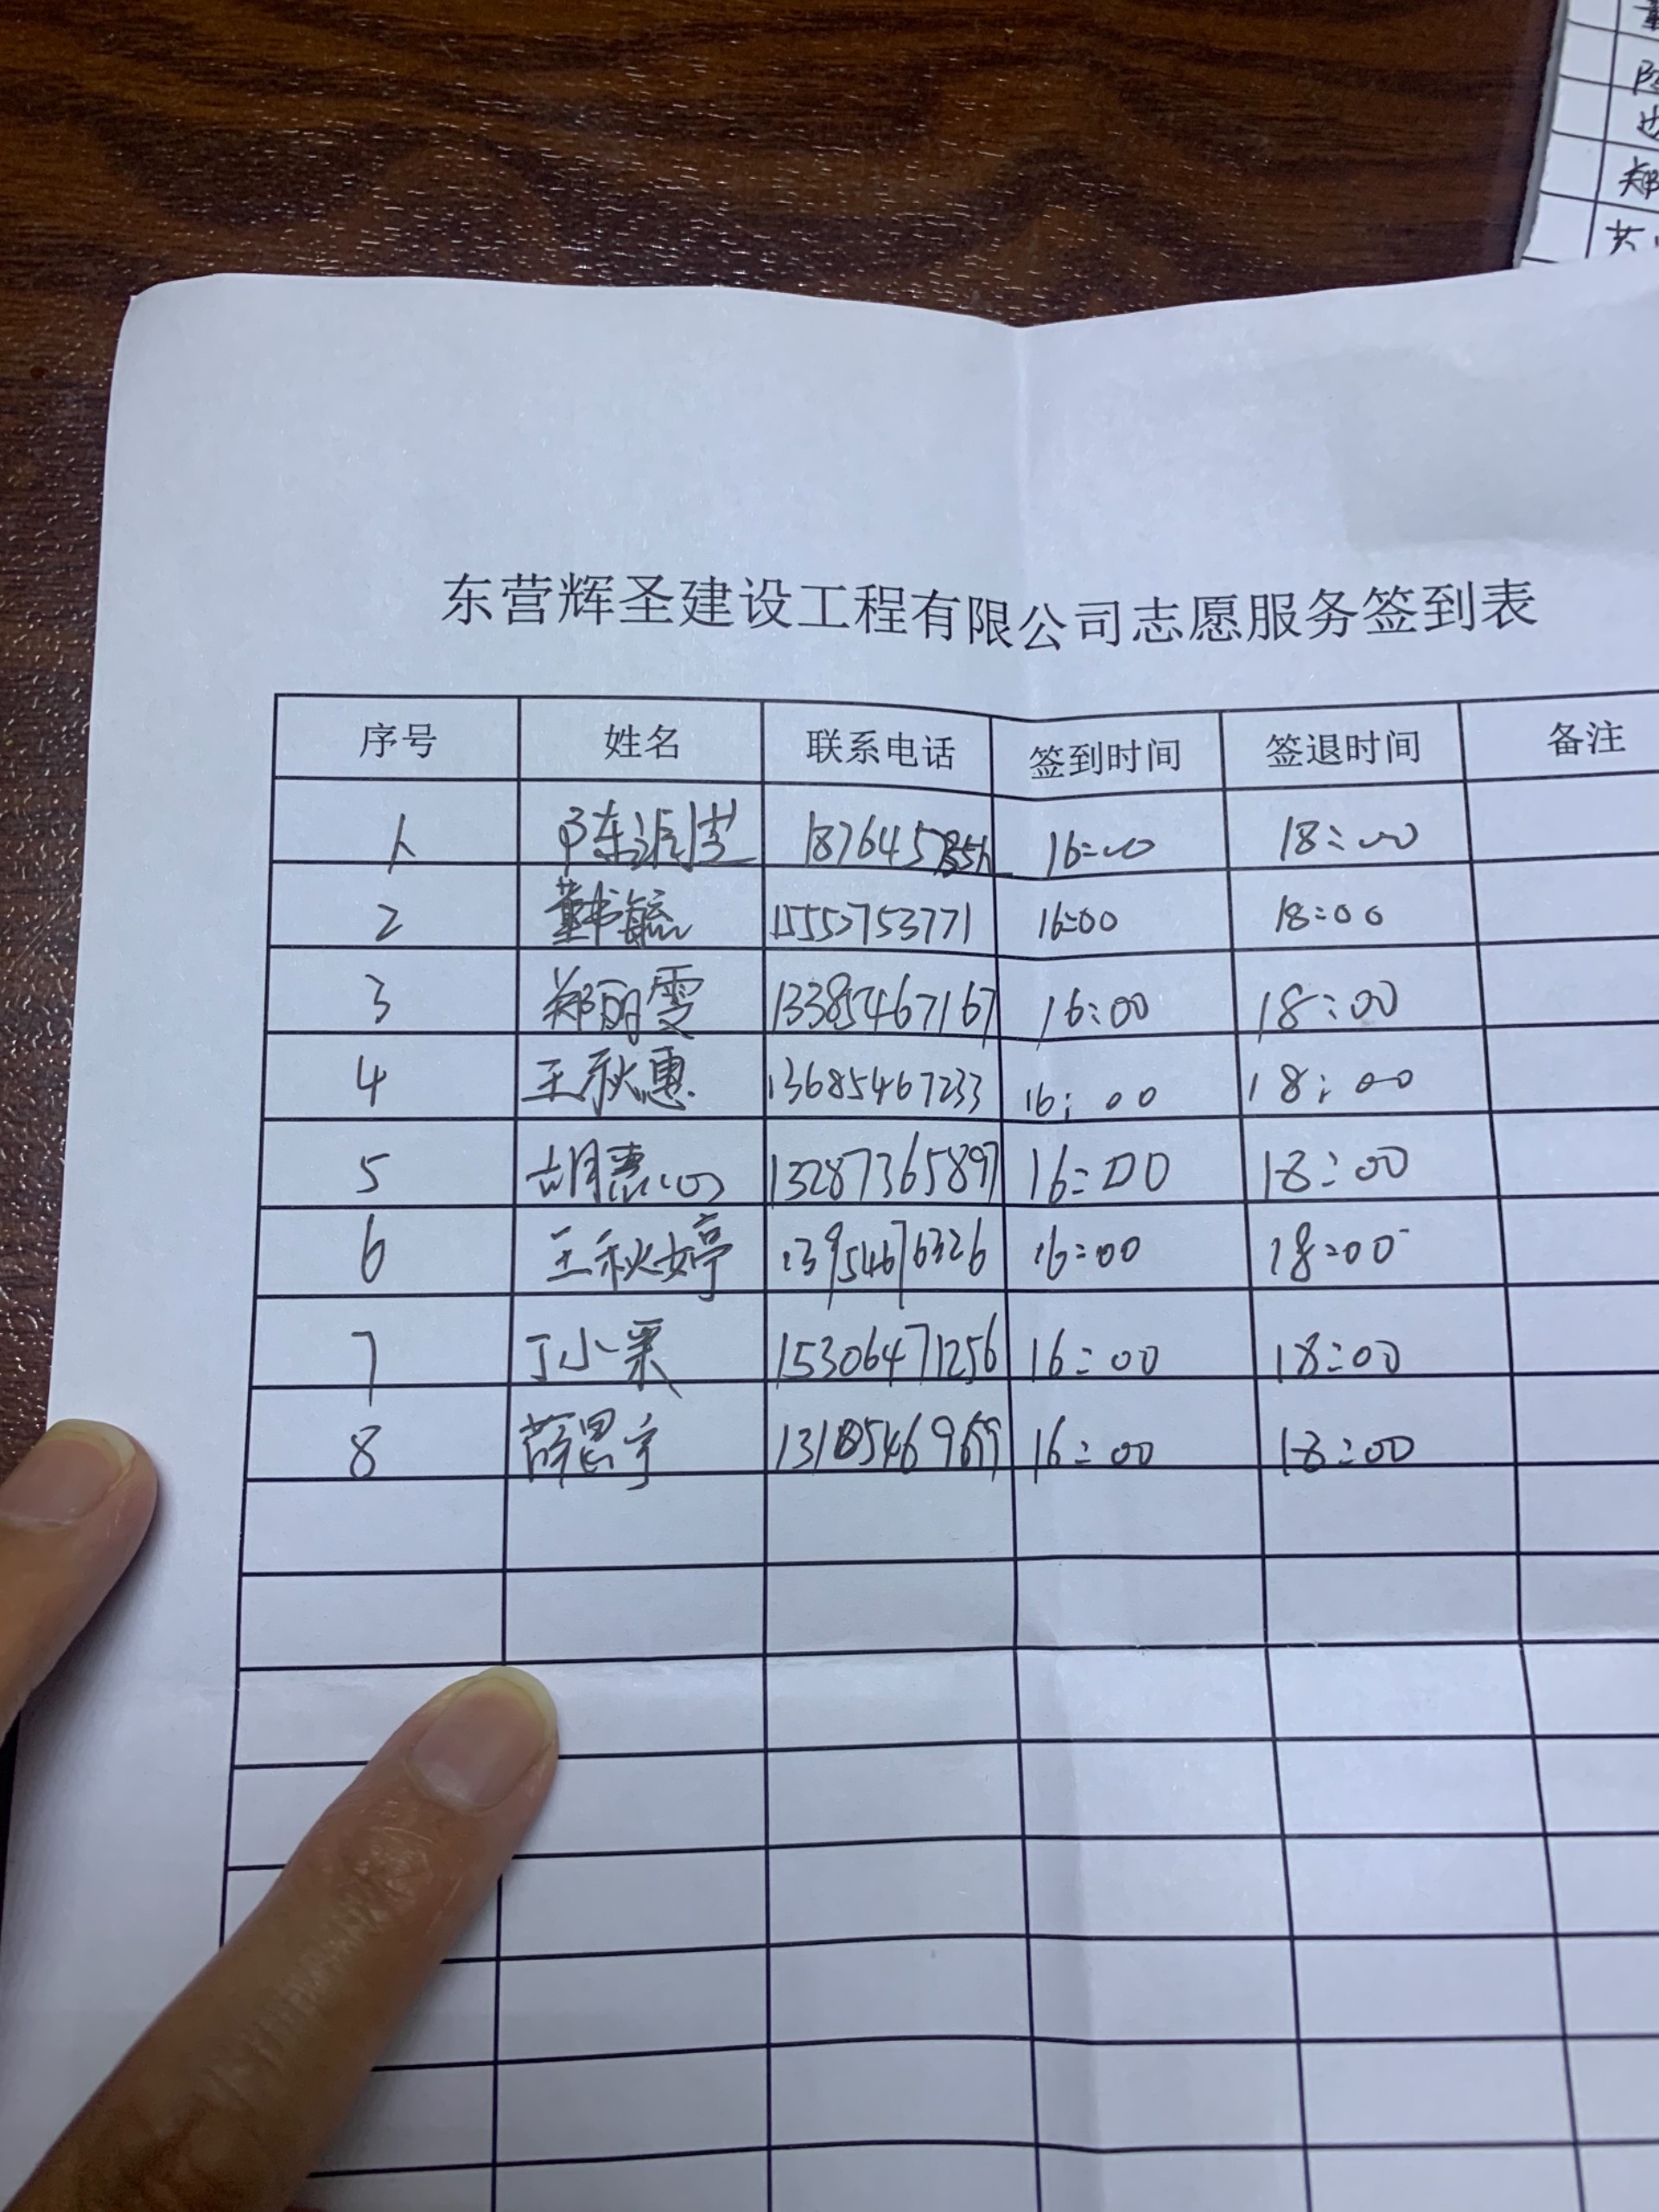 郑
东营辉圣建设工程有限公司志愿服务签到表
序号 姓名 联系电话 签到时间 签退时间 备注
1 陈 16:00 18:00
2 董书毓 15557753771 16:00 18:00
3 郑丽雯 13385467167 16:00 18:00
4 王秋惠 13685467233 16:00 18:00
5 胡惠心 13287365897 16:00 18:00
6 王秋婷 13954676326 16:00 18:00
7 丁小采 15306471256 16:00 18:00
8 薛思宇 16:00 18:00